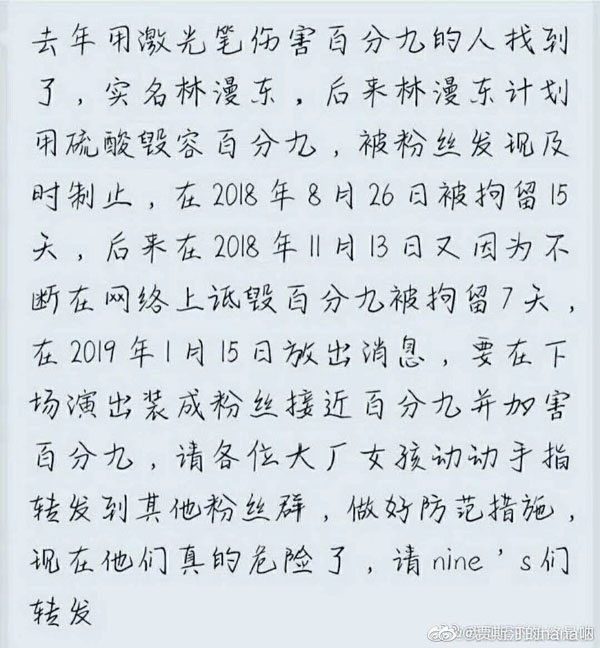 去年用激光笔伤害百分九的人找到
了，实名林漫东，后来林漫东计划
用硫酸毁容百分九，被粉丝发现及
时制止，在2018年8月26日被拘留15
天，后来在2018年11月13日又因为不
断在网络上诋毁百分九被拘留7天，
在2019年1月15日放出消息，要在下
场演出装成粉丝接近百分九并加害
百分九，请各位大厂女孩动动手指
转发到其他粉丝群，做好防范措施，
现在他们真的危险了，请nine's们
转发